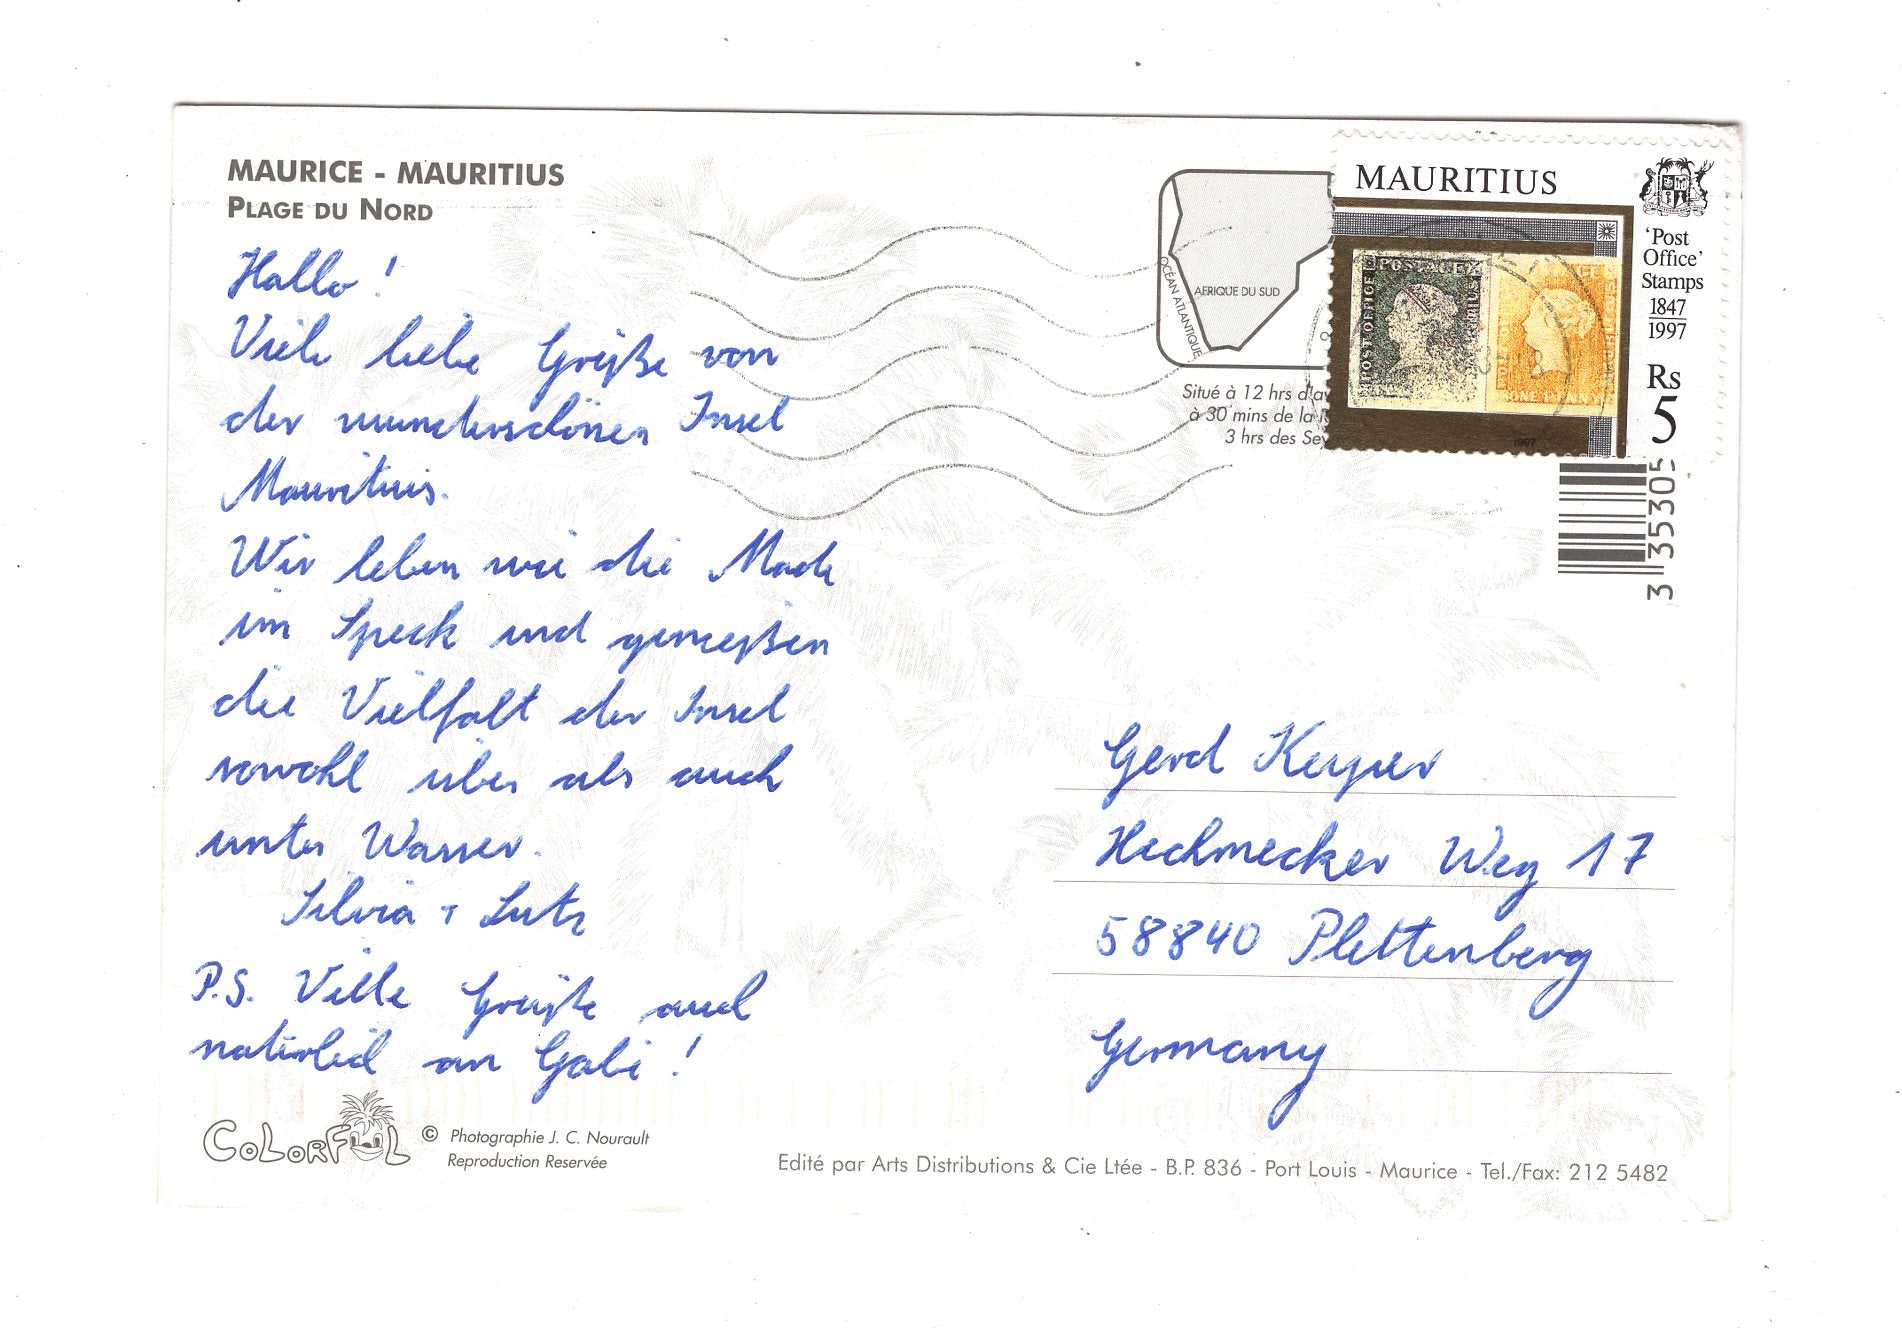 MAURICE - MAURITIUS
PLAGE DU NORD
Hallo!
Viele liebe Grüße von
der wunderschönen Insel
Mauritius.
Wir leben wie die Made
im Speck und genießen
die Vielfalt der Insel
sowohl über als auch
unter Wasser.
Silvia + Lutz
P.S. Viele Grüße auch
natürlich an Gabi!
COLORFUL
© Photographie J. C. Nourault
Reproduction Reservée
OCÉAN ATLANTIQUE
AFRIQUE DU SUD
Situé à 12 hrs d'av
à 30 mins de la R
3 hrs des Sey
MAURITIUS
'Post
Office'
Stamps
1847
1997
Rs
5
POSTAGE
POST OFFICE
ONE PENNY
1997
3 35305
Gerd Keyper
Hechmecker Weg 17
58840 Plettenberg
Germany
Edité par Arts Distributions & Cie Ltée - B.P. 836 - Port Louis - Maurice - Tel./Fax: 212 5482